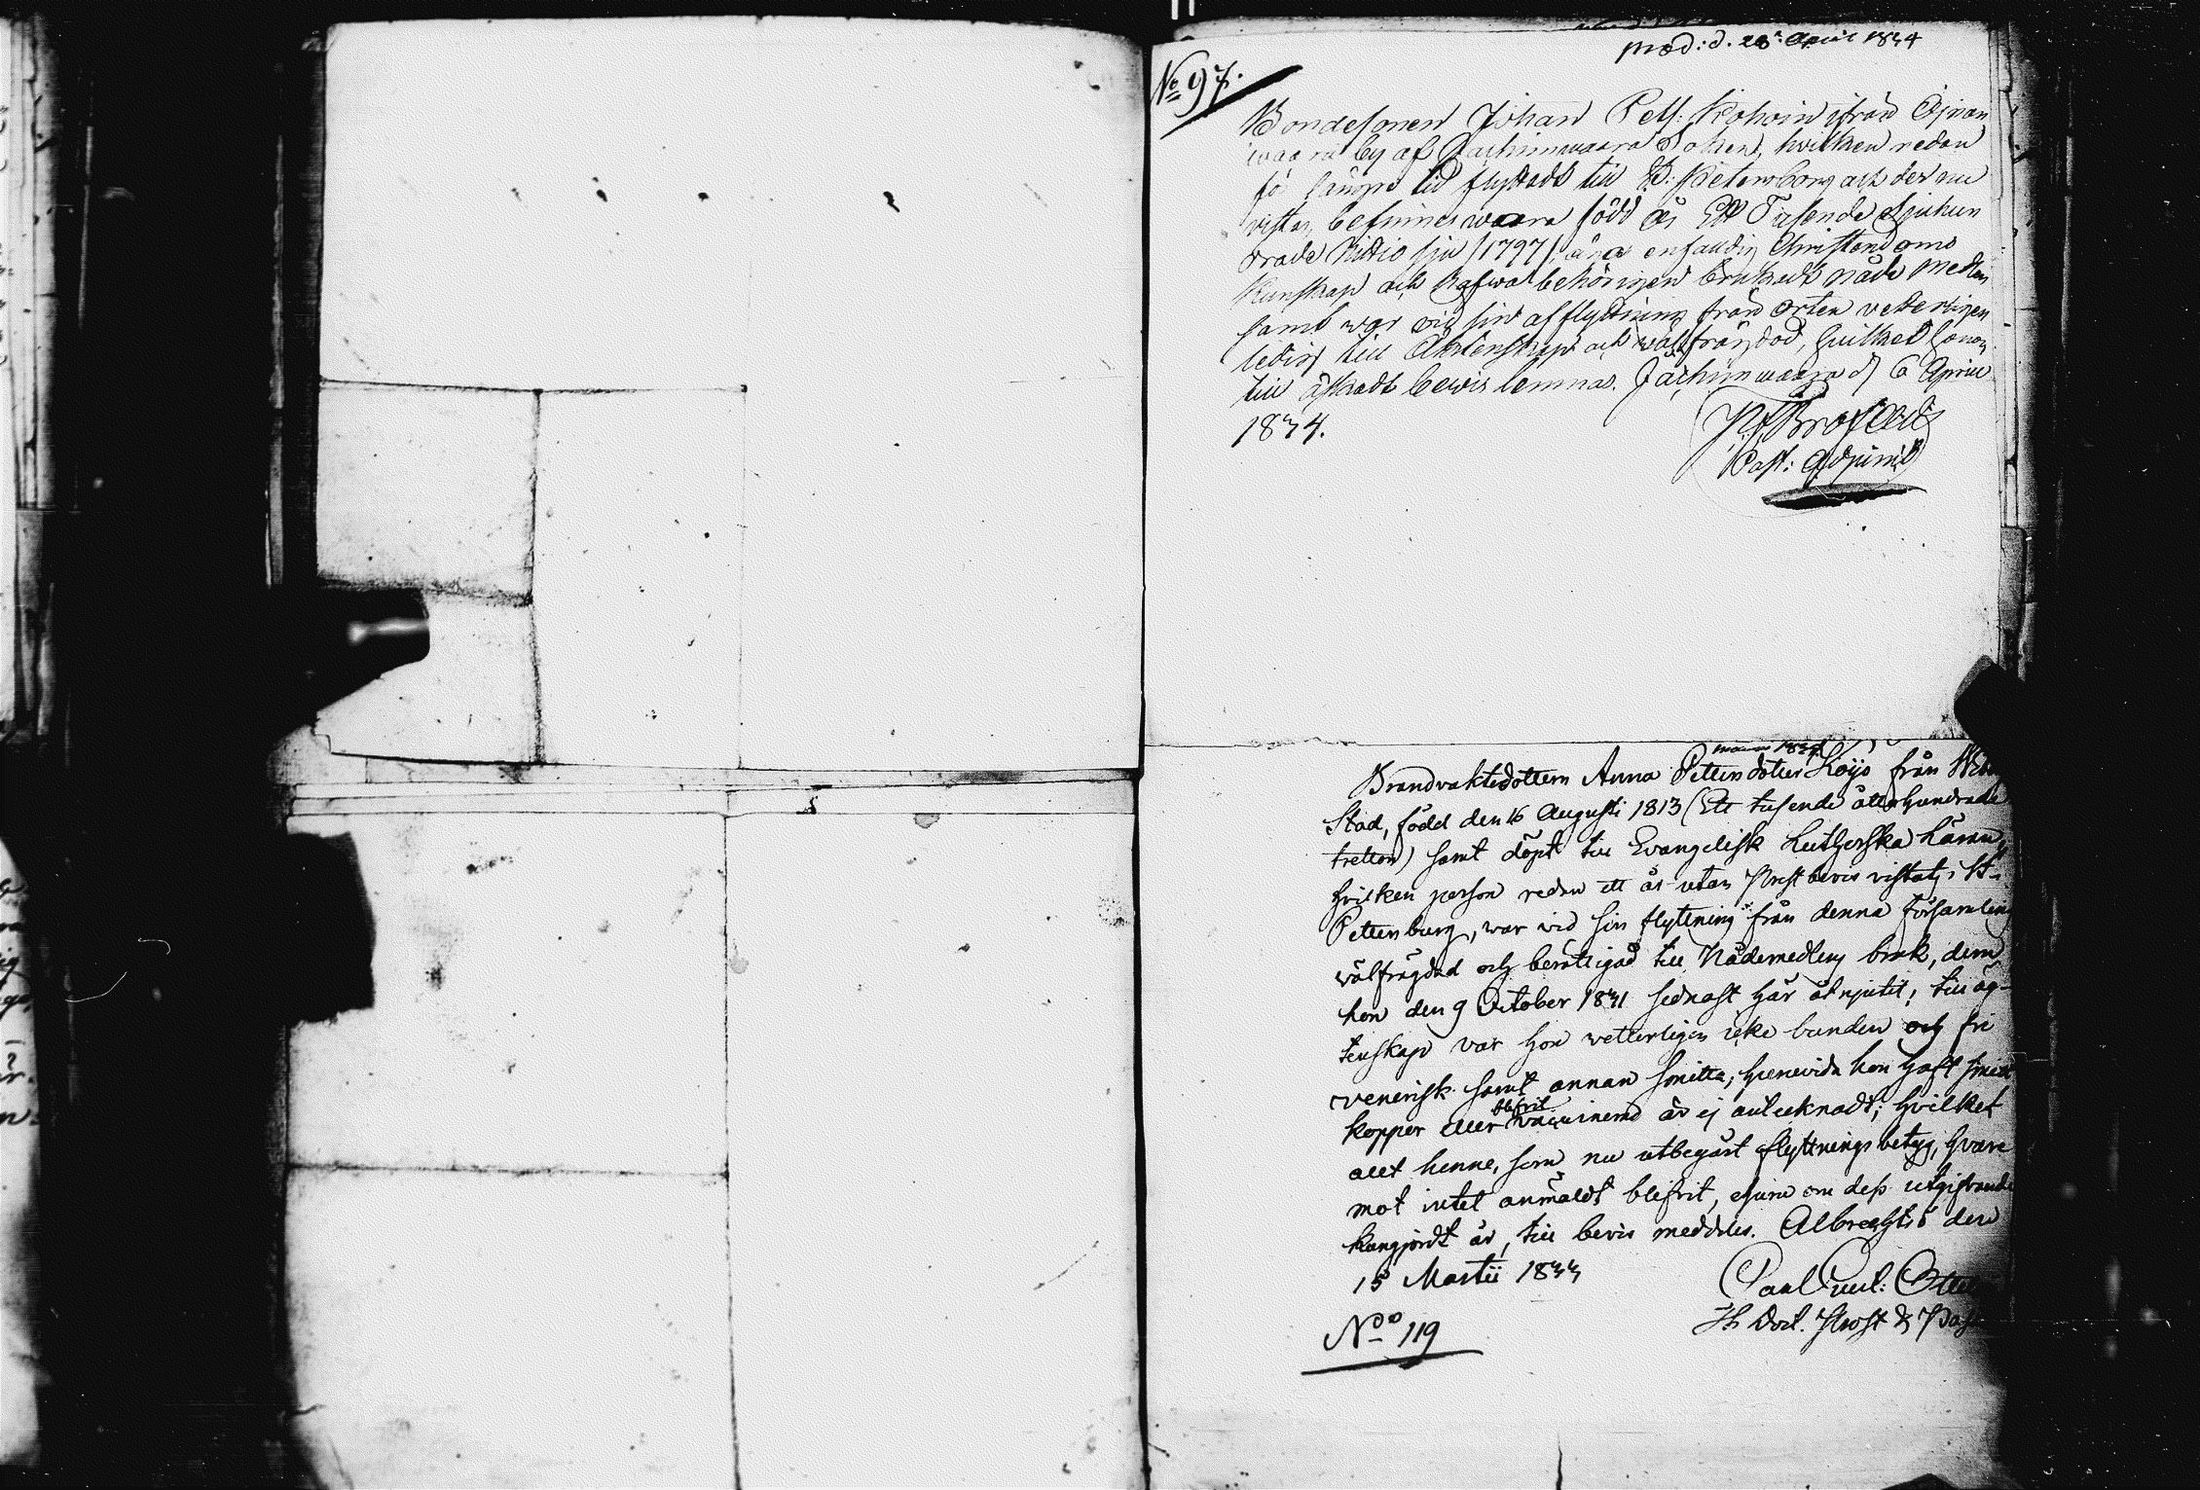 Prod: d. 28 April 1834
No 97.
Bondesonen Johan Pett. Kohoin ifrån
waara by af Jachimwaara Soken, hvilken redan
för längre tid flyttadt till St: Petersborg och der nu
vistas, befinnes waara född år Ett Tusende Sjuhun
drade Nittio sju (1797), äga enfaldig Christendoms
kunskap och hafwa behörigen brukadt nåde medlen
samt war vid sin afflyttning från orten vetterligen
ledig till Äktenskap och wälfrägdad, hvilket honom
till äskadt bewis lemnas. Jachimwaara d 6 April
1834.
Past: Adjunct
Brandvaktsdottern Anna Pettersdotter Koÿo från
Stad, född den 16 Augusti 1813 (Ett tusende åttahundrade
tretton) samt döpt till Evangelisk Lutherska Läran,
hvilken person redan ett år utan Prestbevis vistats i St.
Pettersburg, war vid sin flyttning från denna församling
välfrägdad och berättigad till Nådemedlens bruk, dem
hon den 9 October 1831 sednast här åtnjutit; till äg-
tenskap var hon vetterligen icke bunden och fri
venerisk samt annan smitta; huruvida hon haft
kopper eller blifvit vaccinerad är ej antecknadt; hvilket
allt henne, som nu utbegärt flyttningsbetyg, hvare
mot intet anmäldt blifvit, ehuru om dess utgifvande
kungjordt är, till bevis meddeles. Albrechts d den
15 Martii 1833
Th Doct. Prost &
No 119